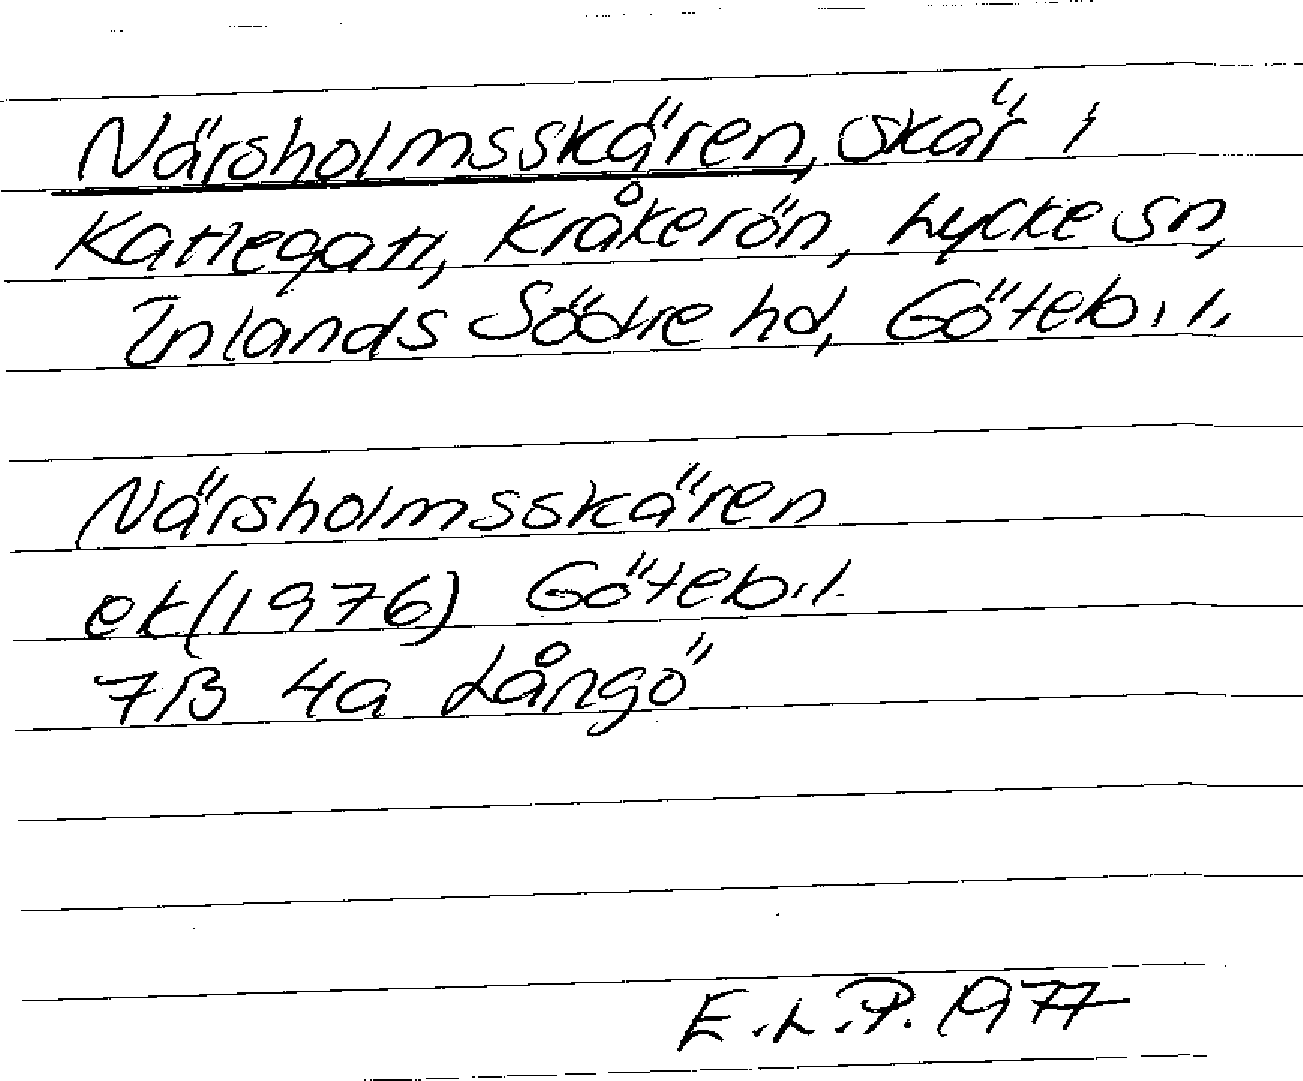 Närsholmsskären, skär i
Kattegatt, Kråkerön, Lycke sn,
Inlands Södre hd, Göteb. l.
Närsholmsskären
ek (1976) Göteb. l.
7B 4a Långö
E.L.P. 1977